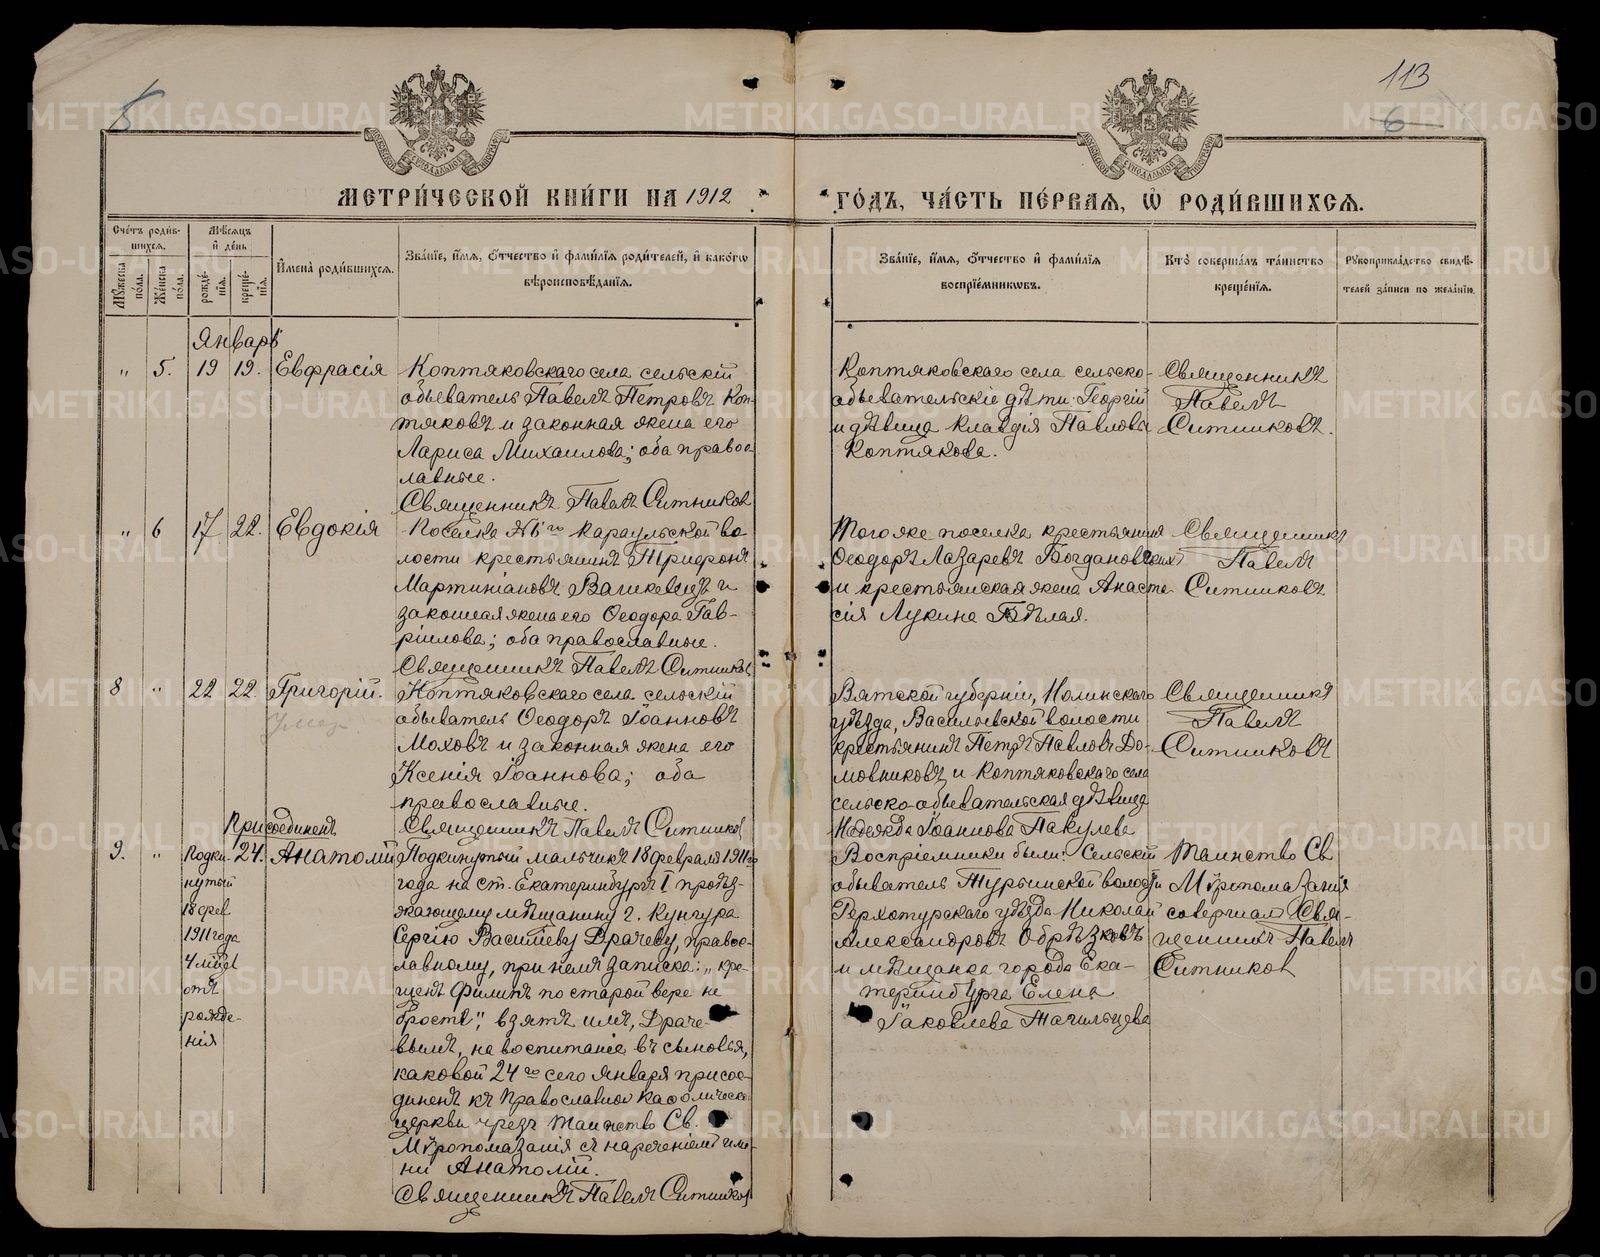 5
113
6
МЕТРИ́ЧЕСКОЙ КНИ́ГИ НА 1912
ГО́ДЪ, ЧА́СТЬ ПЕ́РВАЯ, Ѡ҆ РОДИ́ВШИХСЯ.
Сче́тъ роди́в-
шихся.
Мꙋ́жеска по́ла.
Же́нска по́ла.
Мѣ́сяцъ
и҆ де́нь
рожде́-
нїѧ.
креще́-
нїѧ.
И҆мена̀ роди́вшихся.
Зва́нїе, и҆́мя, ѻ҆́тчество и҆ фами́лїя роди́телей, и҆ како́гѡ
вѣроисповѣ́данїя.
Зва́нїе, и҆́мя, ѻ҆́тчество и҆ фами́лїя
воспрїе́мникѡвъ.
Кто̀ соверша́лъ та́инство
креще́нїя.
Рꙋкоприкла́дство свидѣ́-
телей за́писи по жела́нїю.
Январь
„ 5. 19 19. Евфрасія
Коптяковскаго села сельскій
обыватель Павелъ Петровъ Коп-
тяковъ и законная жена его
Лариса Михаилова; оба правос-
лавные.
Священникъ Павелъ Ситников
Коптяковскаго села сельско-
обывательскіе дѣти: Георгій
и дѣвица Клавдія Павлова
Коптякова.
Священникъ
Павелъ
Ситниковъ.
„ 6 17 22. Евдокія
Поселка № 1го Караульской во
лости крестьянинъ Трифонъ
Мартиніановъ Ванкевичъ и
законная жена его Ѳеодора Гав-
ріилова; оба православные.
Священникъ Павелъ Ситников
Того же поселка крестьянинъ
Ѳеодоръ Лазаревъ Богдановскихъ
и крестьянская жена Анаста-
сія Лукина Бѣлая.
Священникъ
Павелъ
Ситниковъ
8 „ 22 22. Григорій.
умер
Коптяковскаго села сельскій
обыватель Ѳеодоръ Іоанновъ
Моховъ и законная жена его
Ксенія Іоаннова; оба
православные.
Священникъ Павелъ Ситников
Вятской губерніи, Нолинскаго
уѣзда, Васильевской волости
крестьянинъ Петръ Павловъ До-
мовниковъ и Коптяковскаго села
сельско-обывательская дѣвица
Надежда Іоаннова Пакулева
Священникъ
Павелъ
Ситниковъ
Присоединенъ
9. „ Подки- 24. Анатолій
нутый
18 фев
1911 года
4 мѣс.
отъ
рожде-
нія
Подкинутый мальчикъ 18 февраля 1911го
года на ст. Екатеринбургъ I проѣз-
жающему мѣщанину г. Кунгура
Сергію Василіеву Драчеву, правос-
лавному, при немъ записка: „кре-
щенъ Филипъ по старой вере не
бросте", взятъ имъ, Драче-
вымъ, на воспитаніе въ сыновья,
каковой 24го сего января присое-
диненъ къ Православной Каѳолическо
церкви чрезъ Таинство Св.
Мѵропомазанія съ нареченіемъ име-
ни Анатолій.
Священникъ Павелъ Ситников
Воспріемники были: Сельскій
обыватель Турьинской волости
Верхотурскаго уѣзда Николай
Александровъ Обрѣзковъ
и мѣщанка города Ека-
теринбурга Елена
Іаковлева Тагильцева
Таинство Св
Мѵропомазанія
совершалъ Свя-
щенникъ Павелъ
Ситников